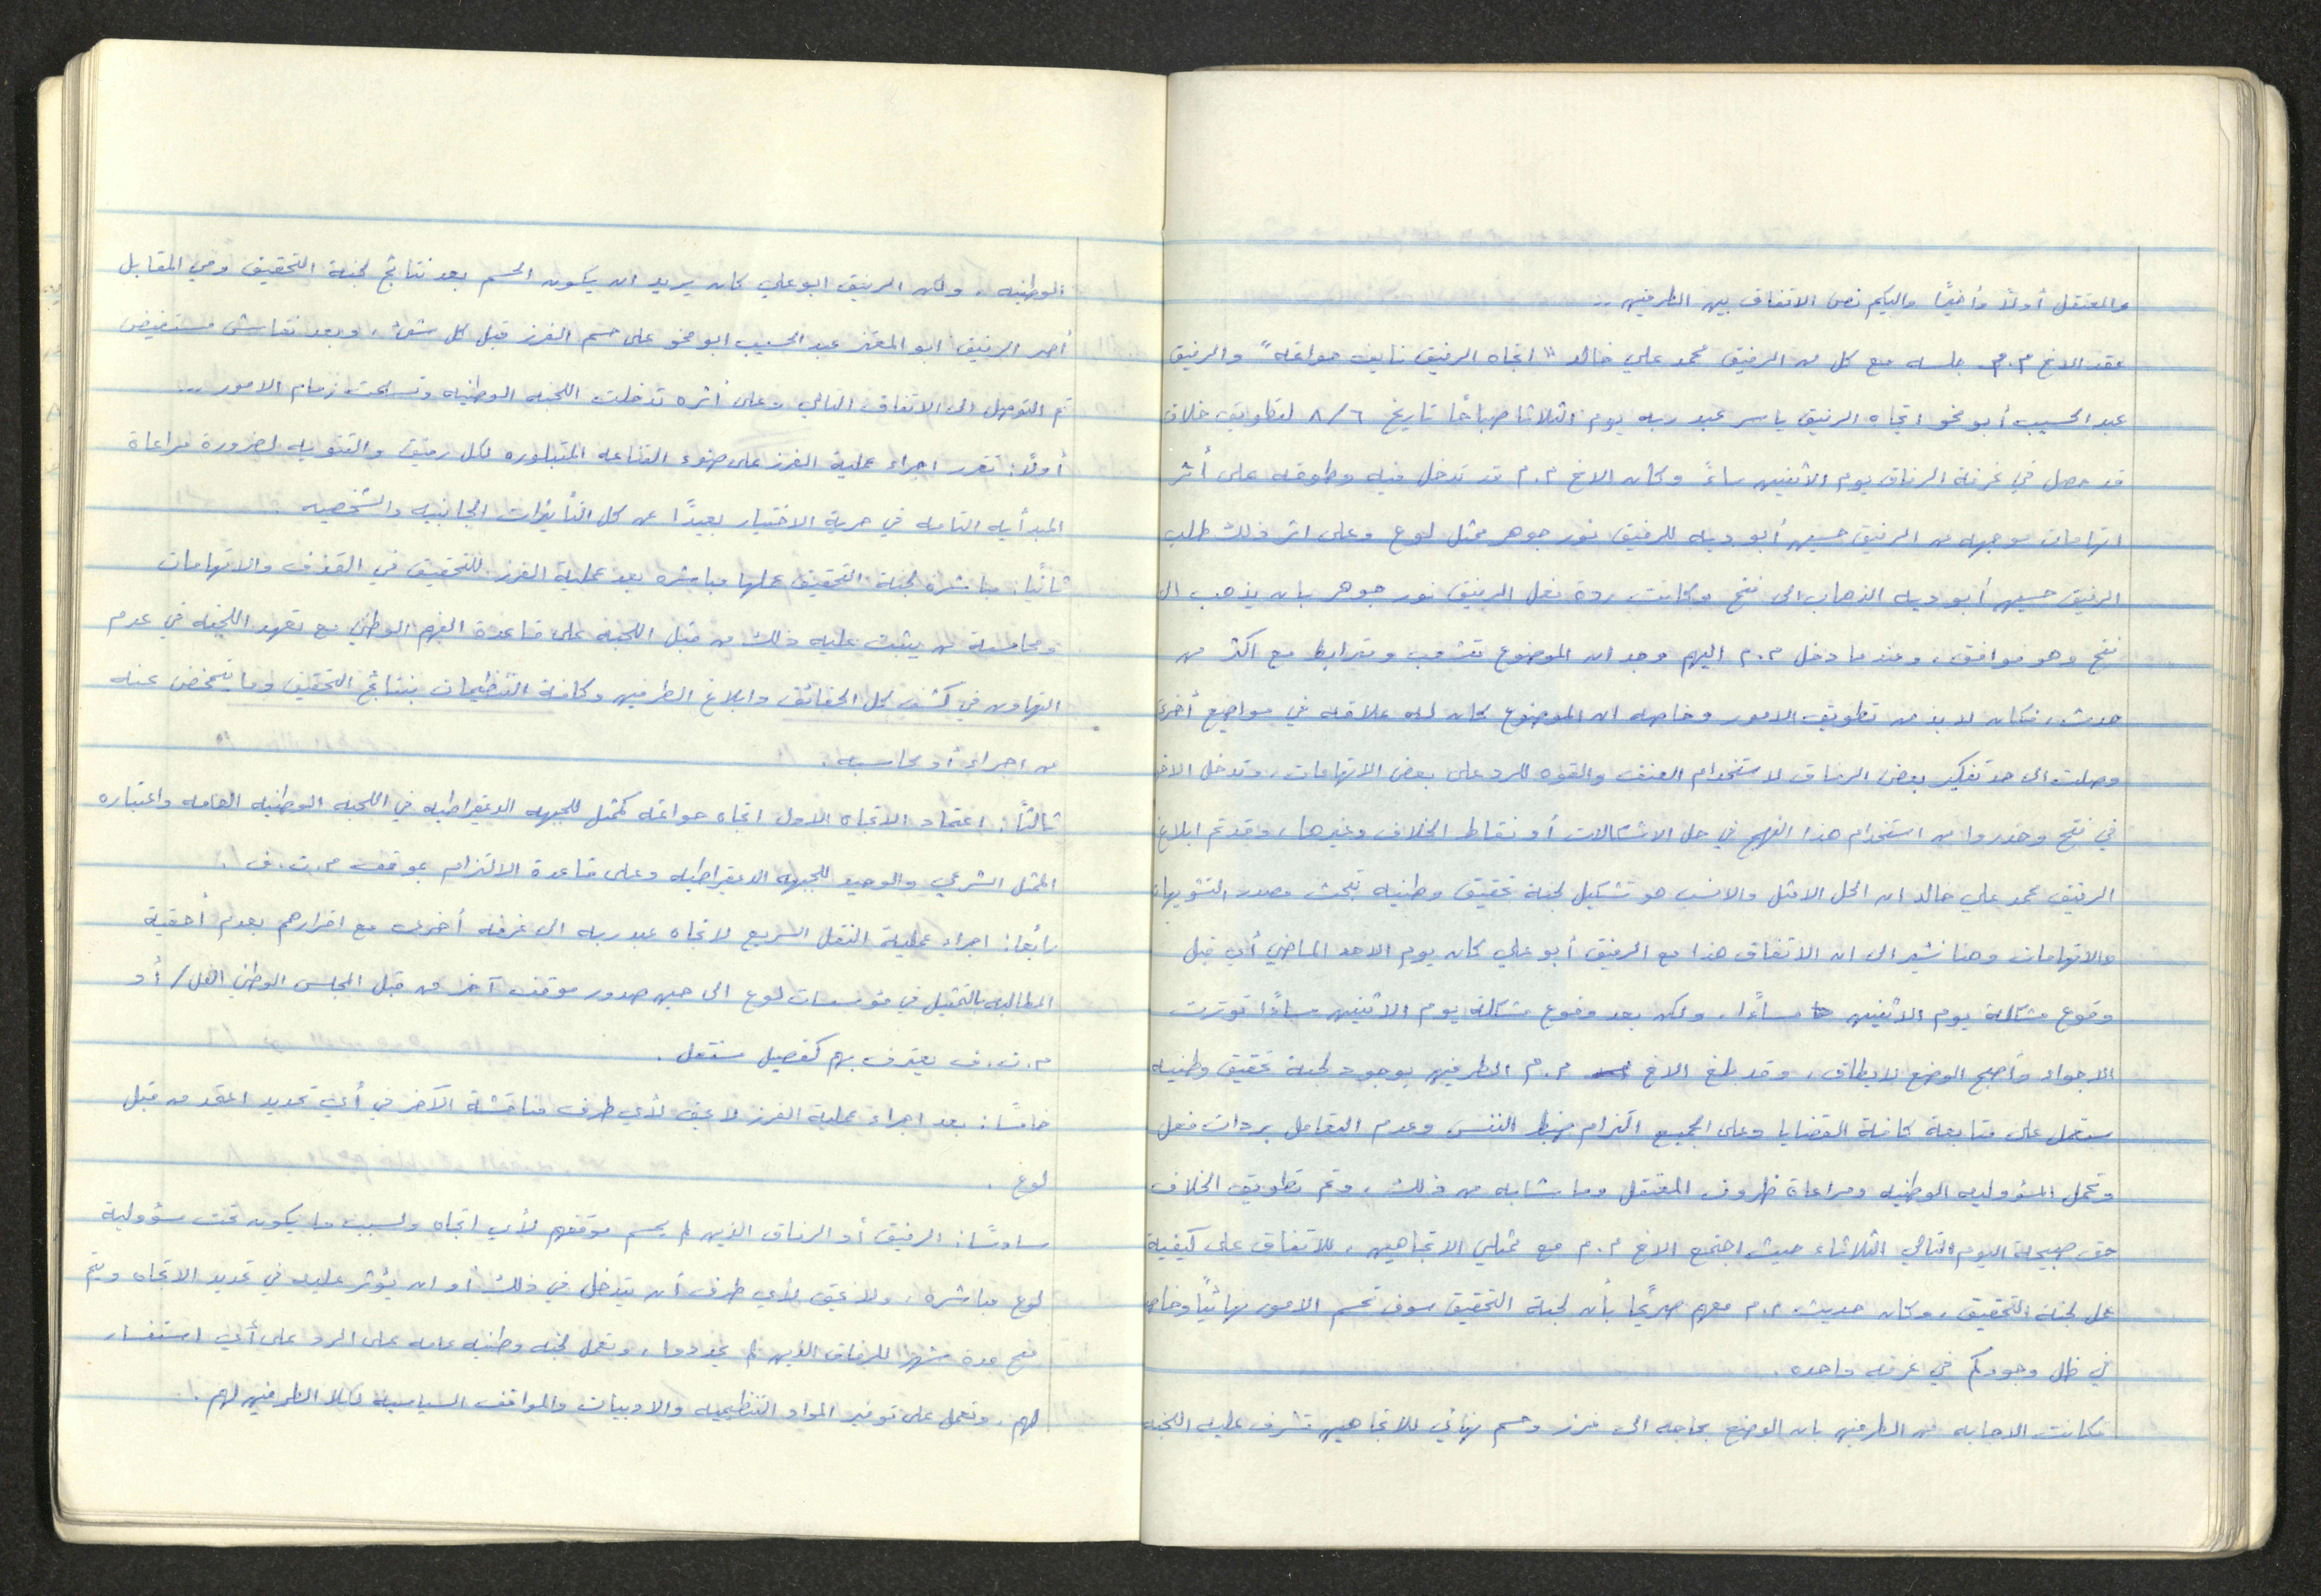 والمعتقل أولاً وأخيرًا واليكم نص الاتفاق بين الطرفين ..
عقد الاخ م.م جلسه مع كل من الرفيق محمد علي خالد "اتجاه الرفيق نايف حواتمه" والرفيق
عبد الحسيب أبو مخو اتجاه الرفيق ياسر عبد ربه يوم الثلاثا صباحًا تاريخ ٨/٦ لتطويق خلاف
قد حصل في غرفة الرفاق يوم الاثنين مساءً وكان الاخ م.م قد تدخل فيه وطوقه على أثر
اتهامات موجهه من الرفيق حسين أبو ديه للرفيق نور جوهر ممثل لوع وعلى اثر ذلك طلب
الرفيق حسين أبو ديه الذهاب الى فتح وكانت ردة فعل الرفيق نور جوهر بان يذهب الى
فتح وهو موافق، وعندما دخل م.م اليهم وجد ان الموضوع تشعب ومترابط مع اكثر من
حدث، فكان لا بد من تطويق الامور وخاصه ان الموضوع كان له علاقه في مواضيع أخرى
وصلت الى حد تفكير بعض الرفاق لاستخدام العنف والقوه للرد على بعض الاتهامات، وتدخل الاخ
في فتح وحذروا من استخدام هذا النهج في حل الاشكالات أو نقاط الخلاف وغيرها، وقد تم ابلاغ
الرفيق محمد علي خالد ان الحل الامثل والانسب هو تشكيل لجنة تحقيق وطنيه تبحث مصدر التشويهات
والاتهامات وهنا نشير الى ان الاتفاق هذا مع الرفيق أبو علي كان يوم الاحد الماضي أي قبل
وقوع مشكلة يوم الاثنين مساءًا، ولكن بعد وقوع مشكلة يوم الاثنين مساءًا توترت
الاجواء وأصبح الوضع لا يطاق، وقد بلغ الاخ م.م الطرفين بوجود لجنة تحقيق وطنيه
ستعمل على متابعة كافة القضايا وعلى الجميع التزام ضبط النفس وعدم التعامل بردات فعل
وتحمل المسؤوليه الوطنيه ومراعاة ظروف المعتقل وما شابه من ذلك، وتم تطويق الخلاف
حتى صبيحة اليوم التالي الثلاثاء حيث اجتمع الاخ م.م مع ممثلي الاتجاهين، للاتفاق على كيفية
عمل لجنة التحقيق، وكان حديث م.م معهم صريحًا بأن لجنة التحقيق سوف تحسم الامور نهائيًا وخاصه
في ظل وجودكم في غرفه واحده.
فكانت الاجابه من الطرفين بان الوضع بحاجه الى فرز وحسم نهائي للاتجاهين تشرف عليه اللجنه
الوطنيه، ولكن الرفيق ابو علي كان يريد ان يكون الحسم بعد نتائج لجنة التحقيق وفي المقابل
أصر الرفيق ابو المعتز عبد الحسيب ابو مخو على حسم الفرز قبل كل شئ، وبعد نقاش مستفيض
تم التوصل الى الاتفاق التالي وعلى أثره تدخلت اللجنه الوطنيه وتسلمت زمام الامور ..
أولاً: تقرر اجراء عملية الفرز على ضوء القناعه المتبلوره لكل رفيق والتنويه لضرورة مراعاة
المبدأيه التامه في حرية الاختيار بعيدًا عن كل التأثيرات الجانبيه والشخصيه.
ثانيًا: مباشرة لجنة التحقيق عملها مباشره بعد عملية الفرز للتحقيق في القذف والاتهامات
ومحاسبة من يثبت عليه ذلك من قبل اللجنه على قاعدة الفهم الوطني مع تعهد اللجنه في عدم
التهاون في كشف كل الحقائق وابلاغ الطرفين وكافة التنظيمات بنتائج التحقيق وما يتمخض عنه
من اجراء أو محاسبه.
ثالثًا: اعتماد الاتجاه الاول اتجاه حواتمه كممثل للجبهه الديمقراطيه في اللجنه الوطنيه العامه واعتباره
الممثل الشرعي والوحيد للجبهه الديمقراطيه وعلى قاعدة الالتزام بموقف م.ت.ف.
رابعًا: اجراء عملية النقل السريع لاتجاه عبد ربه الى غرفه أخرى مع اقرارهم بعدم أحقية
المطالبه بالتمثيل في مؤسسات لوع الى حين صدور موقف آخر من قبل المجلس الوطني / أو
م.ت.ف يعترف بهم كفصيل مستقل.
خامسًا: بعد اجراء عملية الفرز لا يحق لأي طرف مناقشة الآخر في أي تحديد اعتمد من قبل
لوع.
سادسًا: الرفيق أو الرفاق الذين لم يحسم موقفهم لأي اتجاه ولسبب ما يكون تحت مسؤولية
لوع مباشره، ولا يحق لأي طرف أن يتدخل في ذلك أو ان يؤثر عليه في تحديد الاتجاه ويتم
منح مدة شهر للرفاق الذين لم يحددوا، وتعمل لجنه وطنيه عامه على الرد على أي استفسار
لهم، وتعمل على توفير المواد التنظيميه والادبيات والمواقف السياسيه لكلا الطرفين لهم.